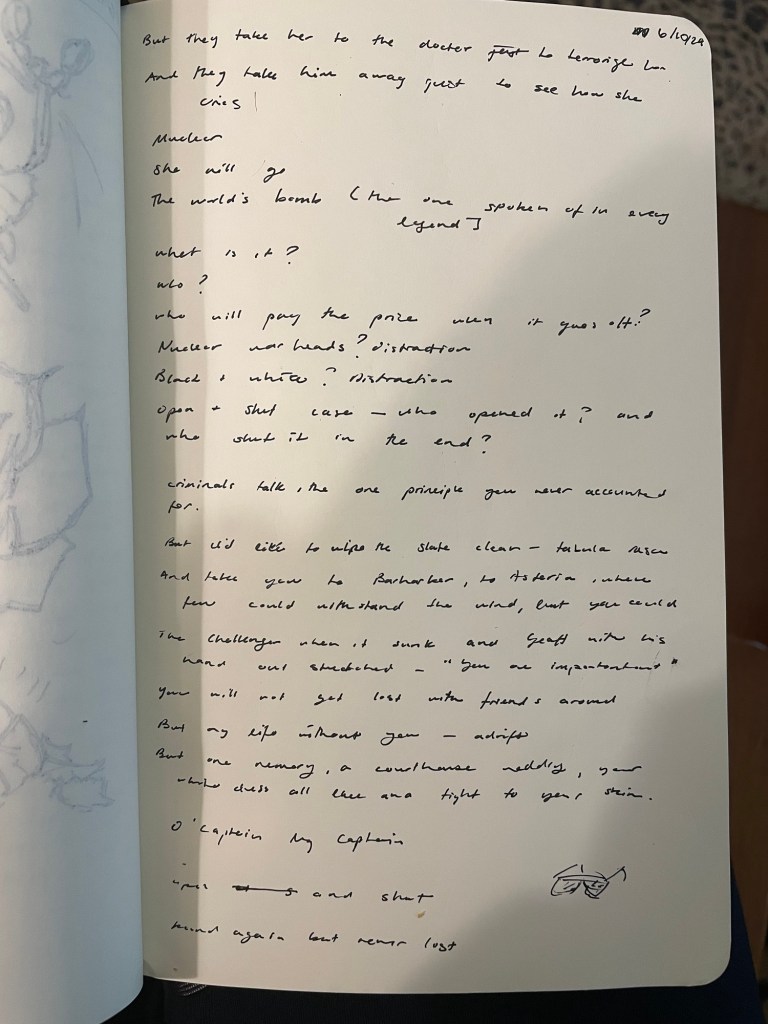 6/10/24
But they take her to the doctor just to terrorize
And they take him away just to see how she
cries
Nuclear
she will go
The world's bomb (the one spoken of in every
legend]
what is it?
who?
who will pay the prize when it goes off?
Nuclear war heads? Distraction
Black + white? Distraction
Open + shut case - who opened it? and
who shut it in the end?
criminals talk, the one principle you never accounted
for.
But I'd like to wipe the slate clean - tabula rasa
And take you to to Asteria, where
few could withstand the wind, but you could
The Challenger when it sunk and Geoff with his
hand out stretched - "You are important"
You will not get lost with friends around
But my life without you - adrift
But one memory, a courthouse wedding, your
white dress all lace and tight to your skin.
O' Captain My Captain
open and shut
found again but never lost